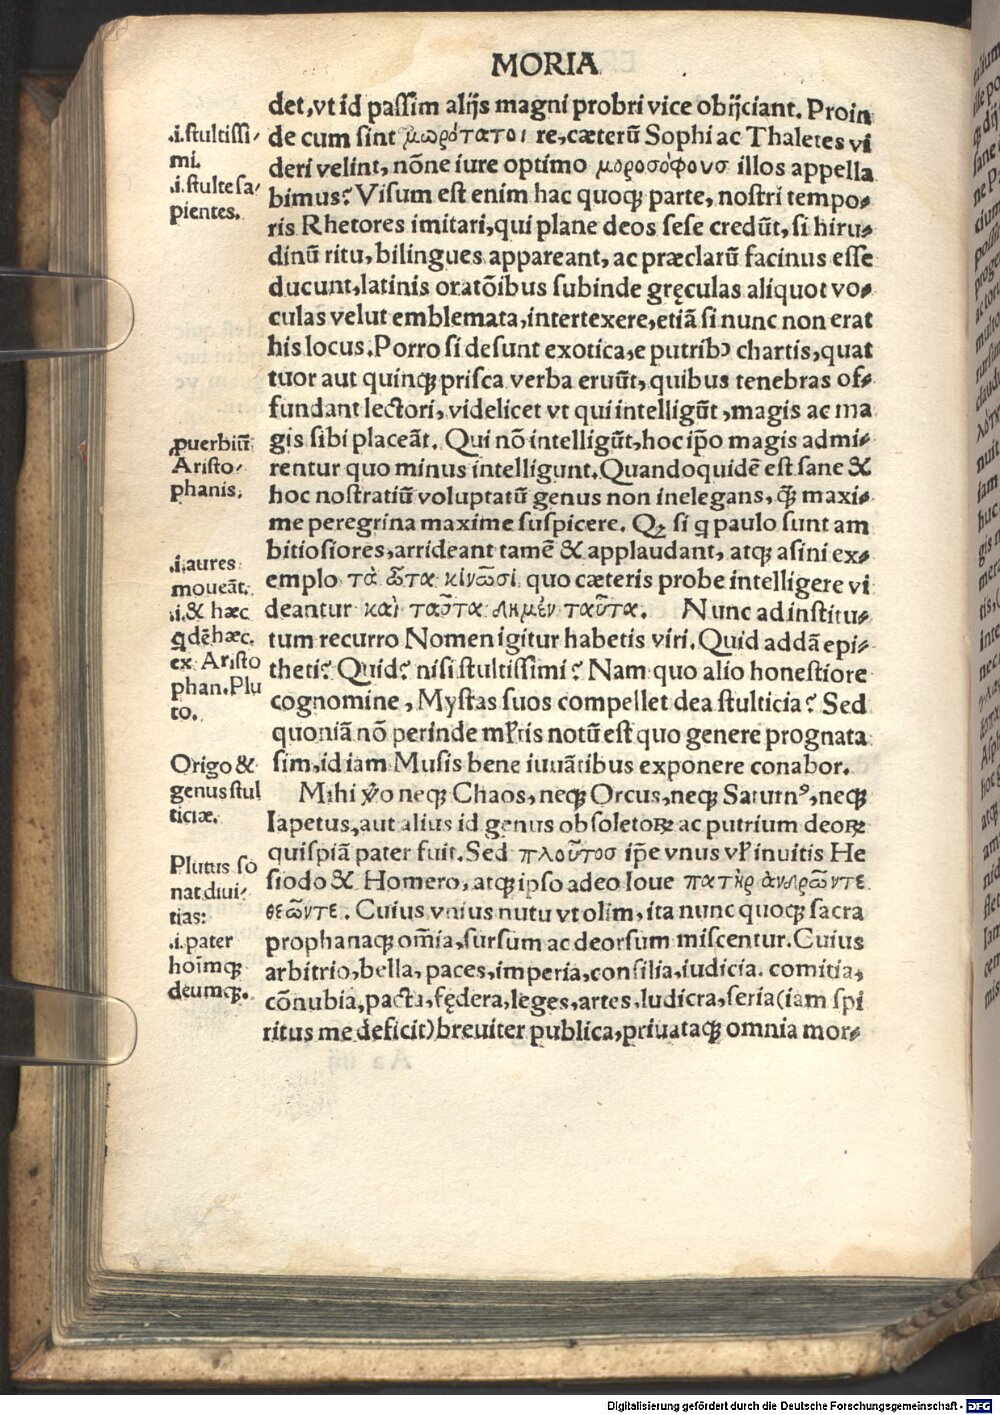 MORIA
det,vt id passim alijs magni probri vice obijciant. Proin
de cum sint μωρότατοι re,cæterũ Sophi ac Thaletes vi
deri velint, nõne iure optimo μοροσόφουσ illos appella
bimus? Visum est enim hac quoqꝫ parte, nostri tempo⸗
ris Rhetores imitari,qui plane deos sese credũt, si hiru⸗
dinũ ritu, bilingues appareant, ac præclarũ facinus esse
ducunt,latinis oratõibus subinde gręculas aliquot vo⸗
culas velut emblemata,intertexere,etiã si nunc non erat
his locus. Porro si desunt exotica,e putribꝰ chartis,quat
tuor aut quinqꝫ prisca verba eruũt, quibus tenebras of⸗
fundant lectori, videlicet vt qui intelligũt ,magis ac ma
gis sibi placeãt. Qui nõ intelligũt,hoc ip̃o magis admi⸗
rentur quo minus intelligunt. Quandoquidẽ est sane &
hoc nostratiũ voluptatũ genus non inelegans, q̃ꝫ maxi⸗
me peregrina maxime suspicere. Qꝫ si q paulo sunt am
bitiosiores,arrideant tamẽ & applaudant, atqꝫ asini ex⸗
emplo τὰ ὦτα κινῶσι quo cæteris probe intelligere vi
deantur καὶ ταῦτα δημέν ταῦτα. Nunc ad institu⸗
tum recurro Nomen igitur habetis viri. Quid addã epi⸗
theti? Quid? nisi stultissimi? Nam quo alio honestiore
cognomine , Mystas suos compellet dea stulticia? Sed
quoniã nõ perinde mł̃ris notũ est quo genere prognata
sim,id iam Musis bene iuuãtibus exponere conabor.
Mihi ṽo neqꝫ Chaos, neqꝫ Orcus,neqꝫ Saturnꝰ,neqꝫ
Iapetus,aut alius id genus obsoletoꝝ ac putrium deoꝝ
quispiã pater fuit. Sed πλοῦτοσ ip̃e vnus vł inuitis He
siodo & Homero, atqꝫ ipso adeo Ioue πατὴρ ἀνδρῶντε
θεῶντε. Cuius vnius nutu vt olim, ita nunc quoqꝫ sacra
prophanaqꝫ om̃ia, sursum ac deorsum miscentur. Cuius
arbitrio, bella, paces, imperia, consilia, iudicia. comitia,
cõnubia, pacta, fędera, leges, artes, ludicra, seria(iam spi
ritus me deficit)breuiter publica, priuataqꝫ omnia mor⸗
.i. stultissi⸗
mi.
.i. stulte sa⸗
pientes.
ꝓuerbiũ
Aristo⸗
phanis.
.i. aures
moueãt.
.i. & hæc
qdẽ hæc.
ex Aristo
phan. Plu
to.
Origo &
genus stul
ticiæ.
Plutus so
nat diui⸗
tias:
.i. pater
hoĩmqꝫ
deumqꝫ.
Digitalisierung gefördert durch die Deutsche Forschungsgemeinschaft - DFG